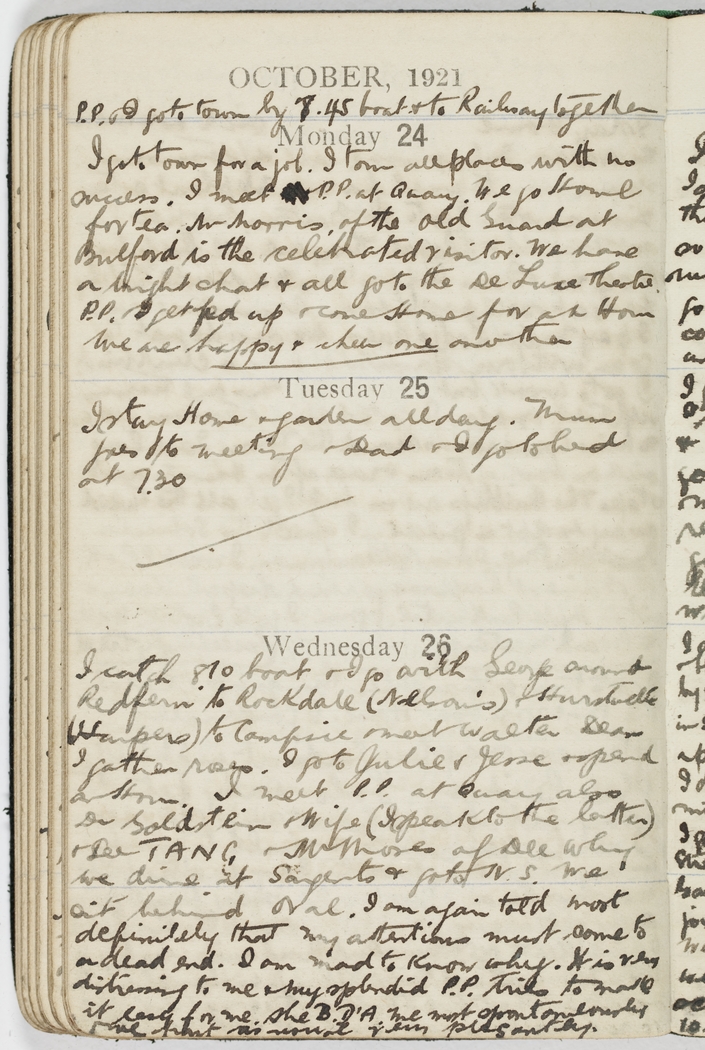 OCTOBER, 1921
P.P. & I go to town by 8.45 boat & to Railway together
Monday 24
I go to town for a job. I town all places with no
success. I meet P.P. at Quay. We go Home
for tea. Mr Morris, of the Old Guard at
Bulford is the celebrated visitor. We have
a bright chat & all go to the De Luxe Theatre.
P.P. & I get fed up & come Home for an Hour
We are happy & cheer one another
Tuesday 25
I stay Home & garden all day. Mum
goes to meeting & Dad & I go to bed
at 7.30
Wednesday 26
I catch 810 boat & I go with George around
Redfern to Rockdale (Nelson's) & Hurstville
(Harpers) to Campsie & meet Walter Dean
I gather roses. I go to Julie & Jesse & spend
an Hour. I meet P.P. at Quay also
Dr Goldstein & Wife (I speak to the latter)
& See TANG & Mr of Dee Why
we dine at Sargents & go to N.S. We
sit behind Oval. I am again told most
definitely that my attentions must come to
a dead end. I am mad to know why. It is very
distressing to me & my splendid P.P. tries to make
it easy for me. She B.D'A. me most spontaneously
& we part as usual very pleasantly.